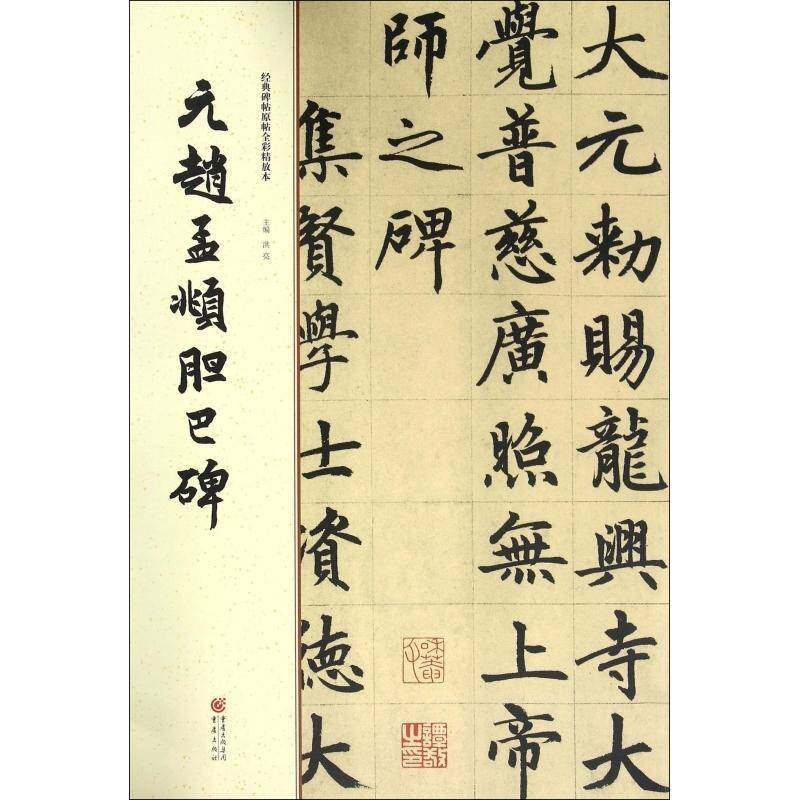 大元勅賜龍興寺大
覺普慈廣照無上帝
師之碑
集賢學士資德大
经典碑帖原帖全彩精放本
主编 洪亮
元趙孟頫胆巴碑
重庆出版集团
重庆出版社